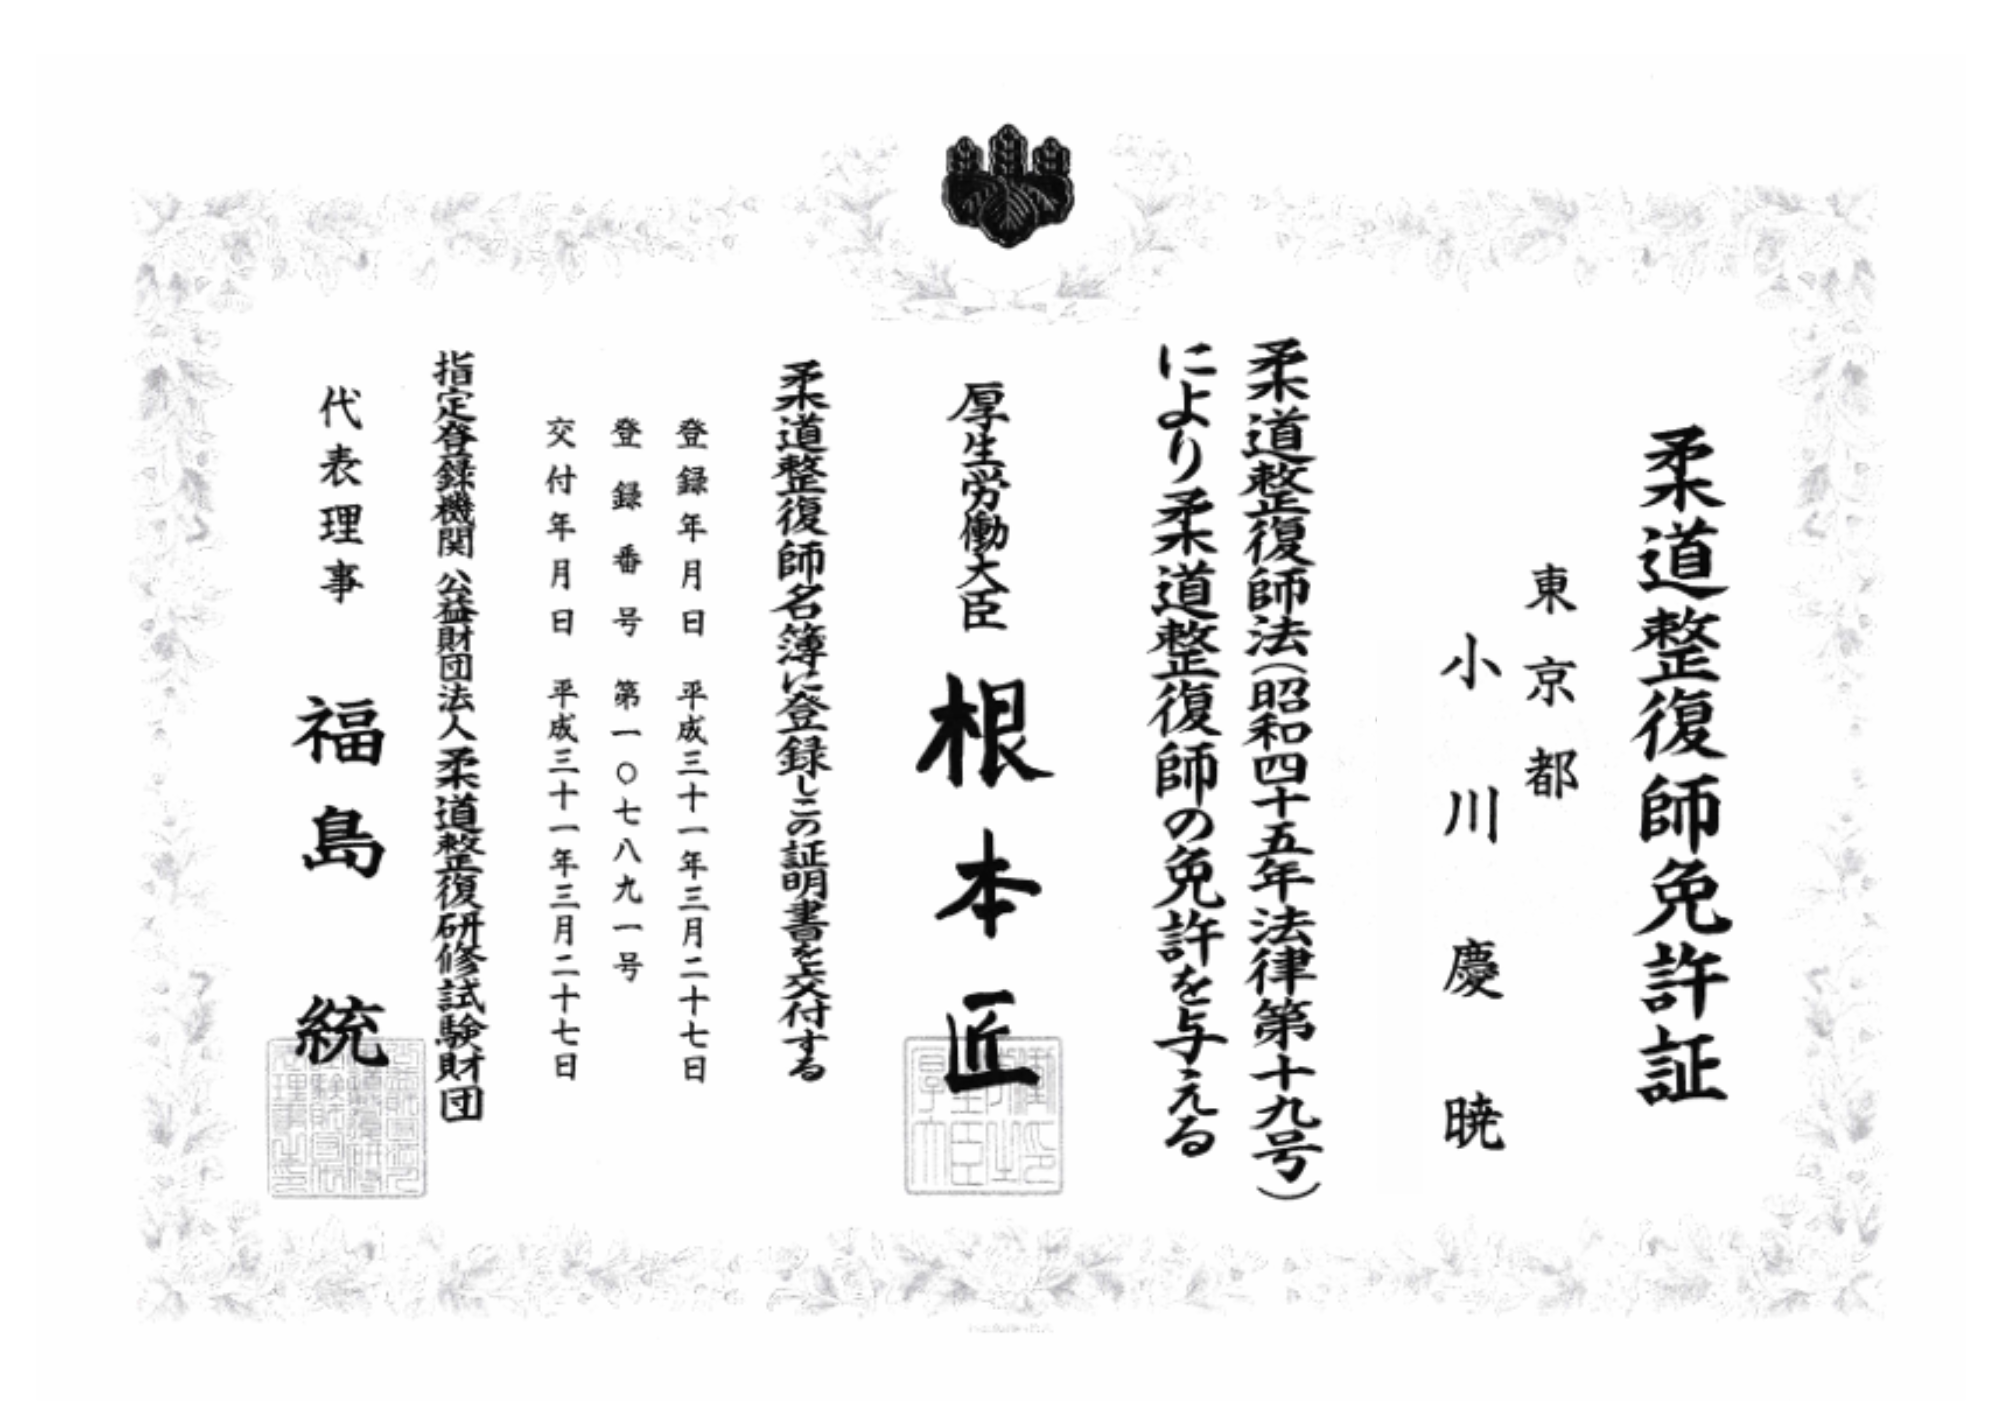 柔道整復師免許証
東京都
小川慶暁
柔道整復師法（昭和四十五年法律第十九号）
により柔道整復師の免許を与える
厚生労働大臣 根本匠
柔道整復師名簿に登録しこの証明書を交付する
登録年月日 平成三十一年三月二十七日
登録番号 第一〇七八九一号
交付年月日 平成三十一年三月二十七日
指定登録機関 公益財団法人柔道整復研修試験財団
代表理事 福島統